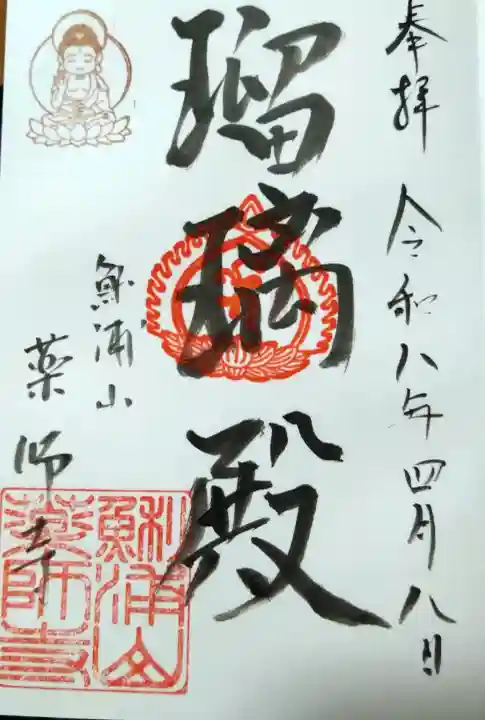 奉拝 令和八年四月八日
瑠璃殿
鯏浦山
薬師寺
鯏浦山
薬師寺